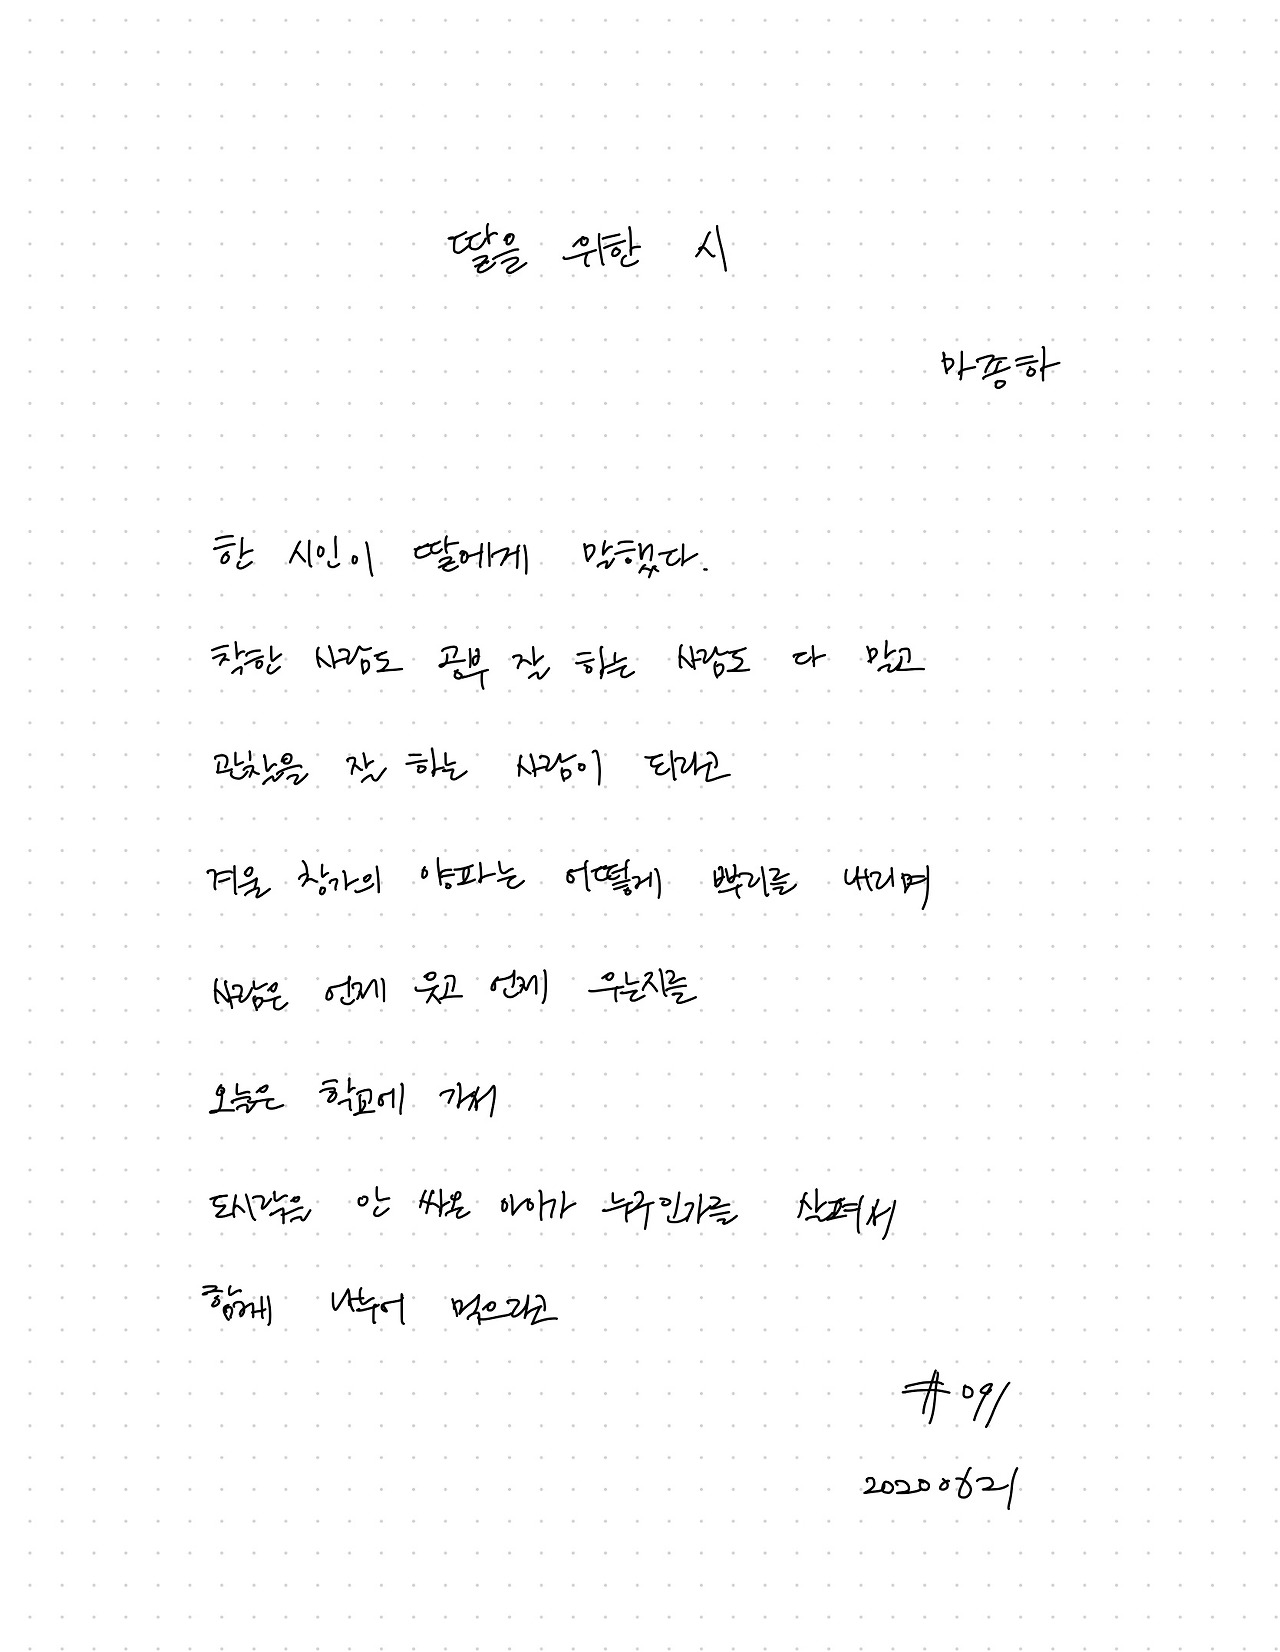 딸을 위한 시
마종하
한 시인이 딸에게 말했다.
착한 사람도 공부 잘 하는 사람도 다 말고
관찰을 잘 하는 사람이 되라고
겨울 창가의 양파는 어떻게 뿌리를 내리며
사람은 언제 웃고 언제 우는지를
오늘은 학교에 가서
도시락을 안 싸온 아이가 누구인가를 살펴서
함께 나누어 먹으라고
#091
20200621